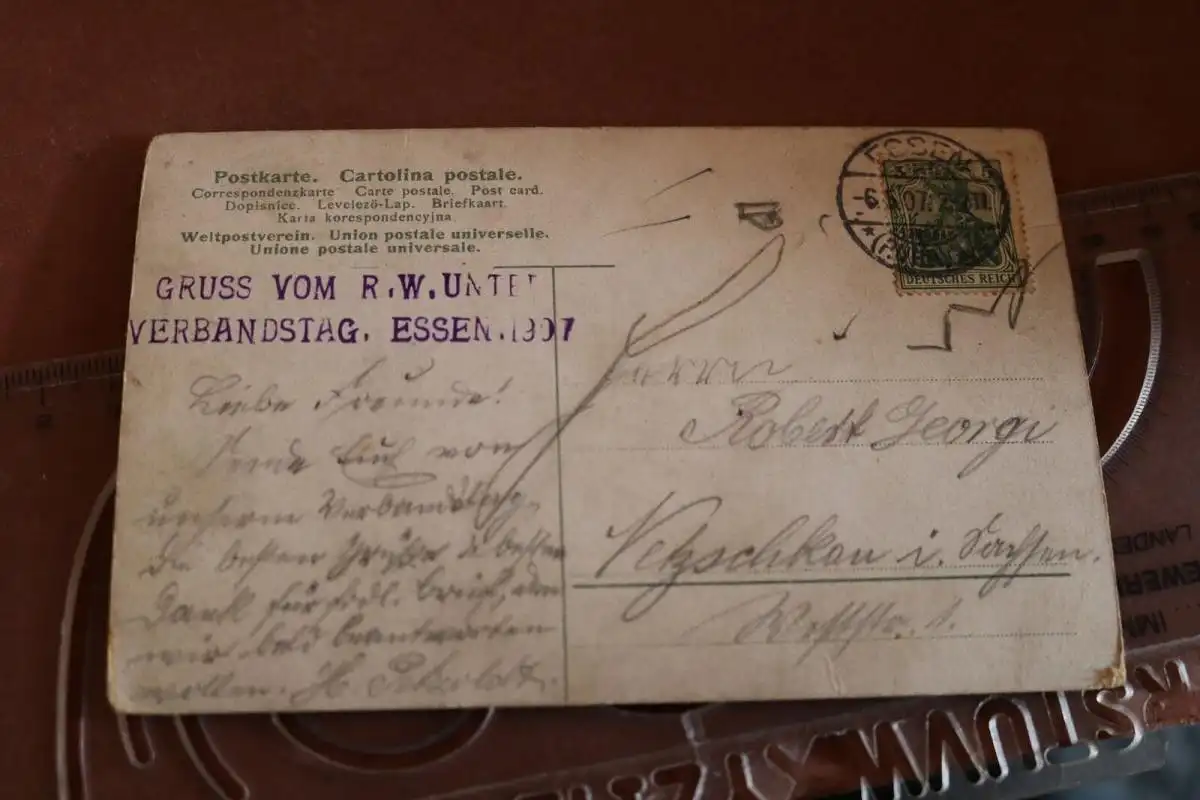 Postkarte. Cartolina postale.
Correspondenzkarte Carte postale. Post card.
Dopisnice. Levelező-Lap. Briefkaart.
Karta korespondencyjna
Weltpostverein. Union postale universelle.
Unione postale universale.
GRUSS VOM R.W.UNTE
VERBANDSTAG. ESSEN.1907
Liebe Freunde!
Sende Euch von
unserm Verbandstag
die besten Grüße & besten
Dank für frdl. Brief, den
wir bald beantworten
wollen. H.
ESSEN
DEUTSCHES REICH
Herrn
Robert Georgi
Netzschkau i. Sachsen.
Weststr. 1.
LANDE
EWER
IMM
RSTUVW